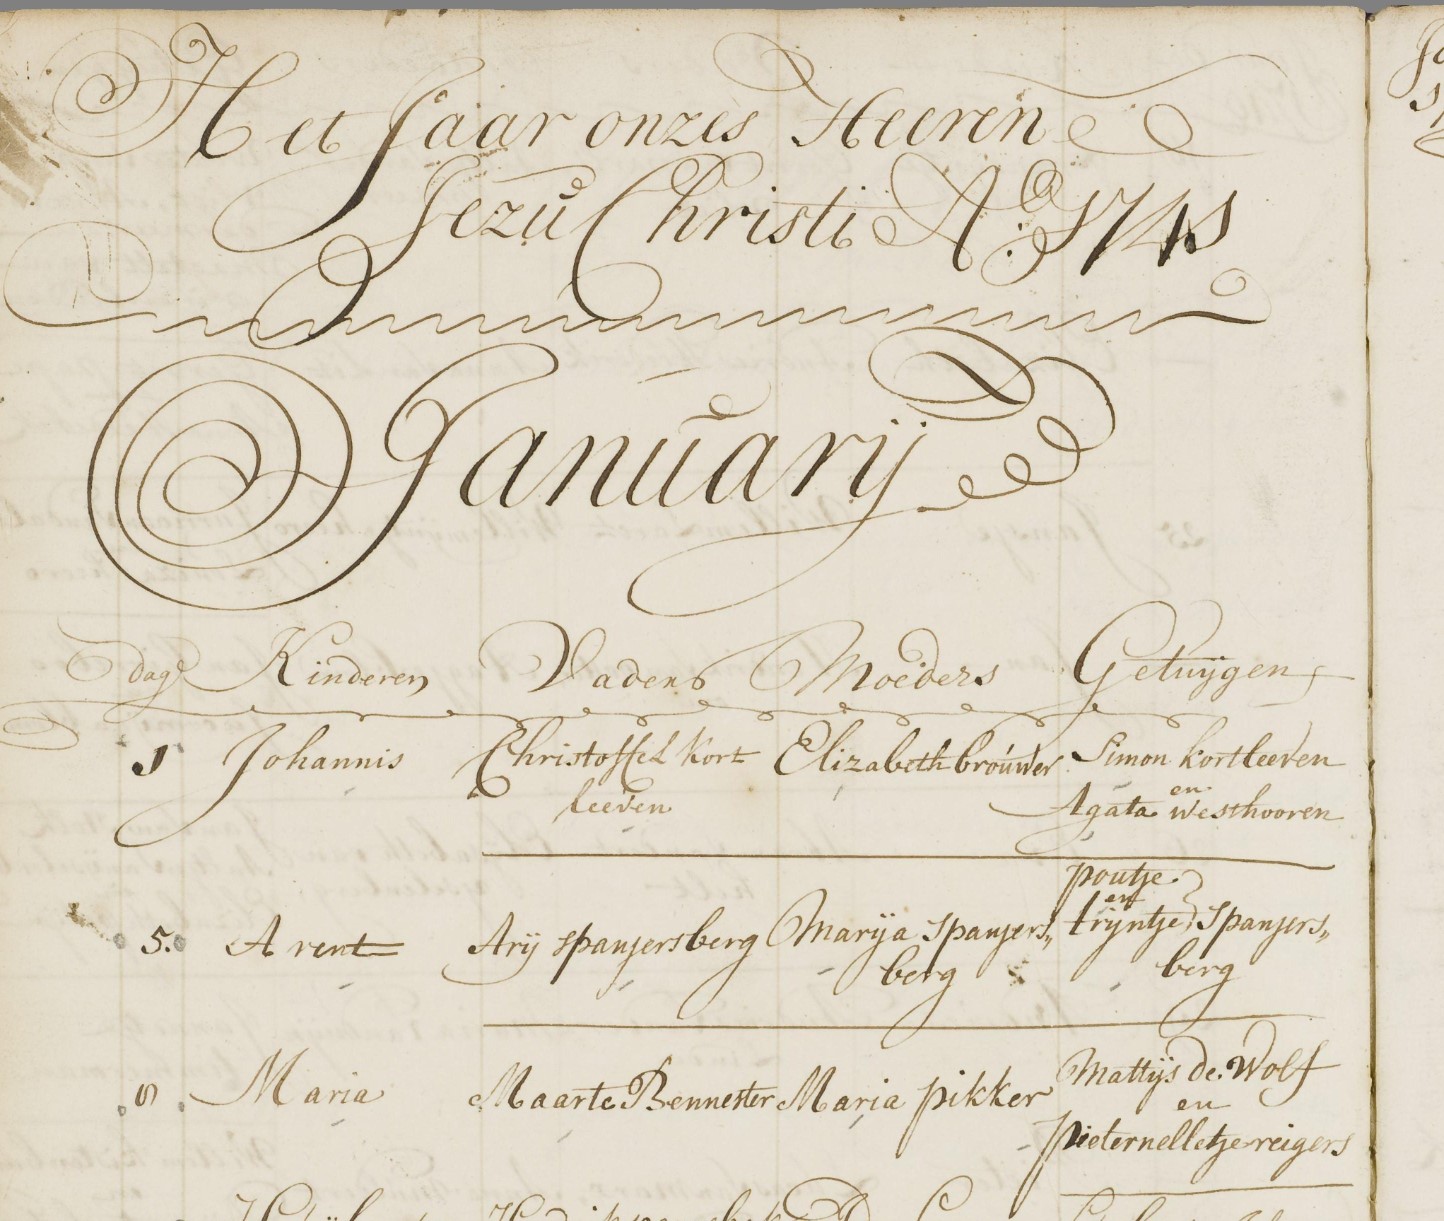 Het Jaar onzes Heeren
Jezu Christi Ao: 1741
January
dage Kinderen Vaders Moeders Getuijgen
1 Johannis Christoffel Kort Elizabeth brouwer Simon kortleeven
leeven en
Agata westhooren
poutje
en
5. Arent Arij spanjersberg Marija spanjers„ trijntje spanjers„
berg berg
8 Maria Maarte Bennester Maria pikker Mattijs de Wolf
en
pieternelletje reigers